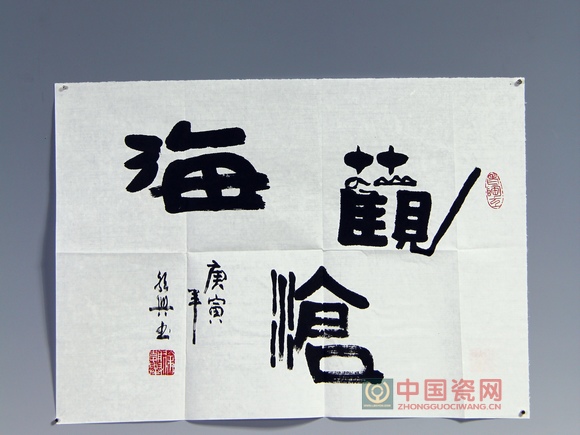 觀
滄
海
庚寅年
興书
中国瓷网
ZHONGGUOCIWANG.CN